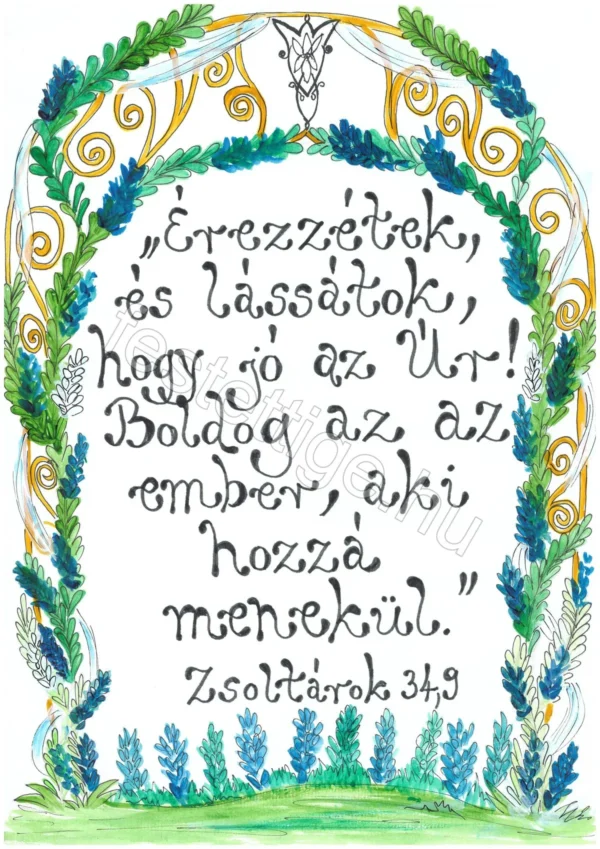 „Érezzétek,
és lássátok,
hogy jó az Úr!
Boldog az az
ember, aki
hozzá
menekül.”
Zsoltárok 34,9
festettige.hu